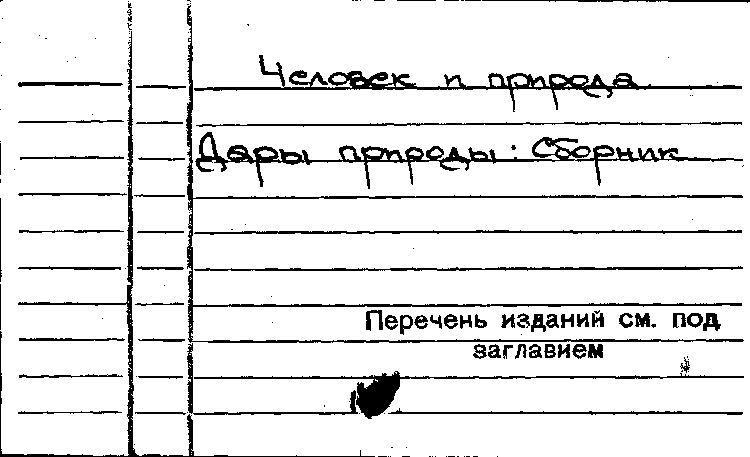 Человек и природа
Дары природы: Сборник
Перечень изданий см. под
заглавием